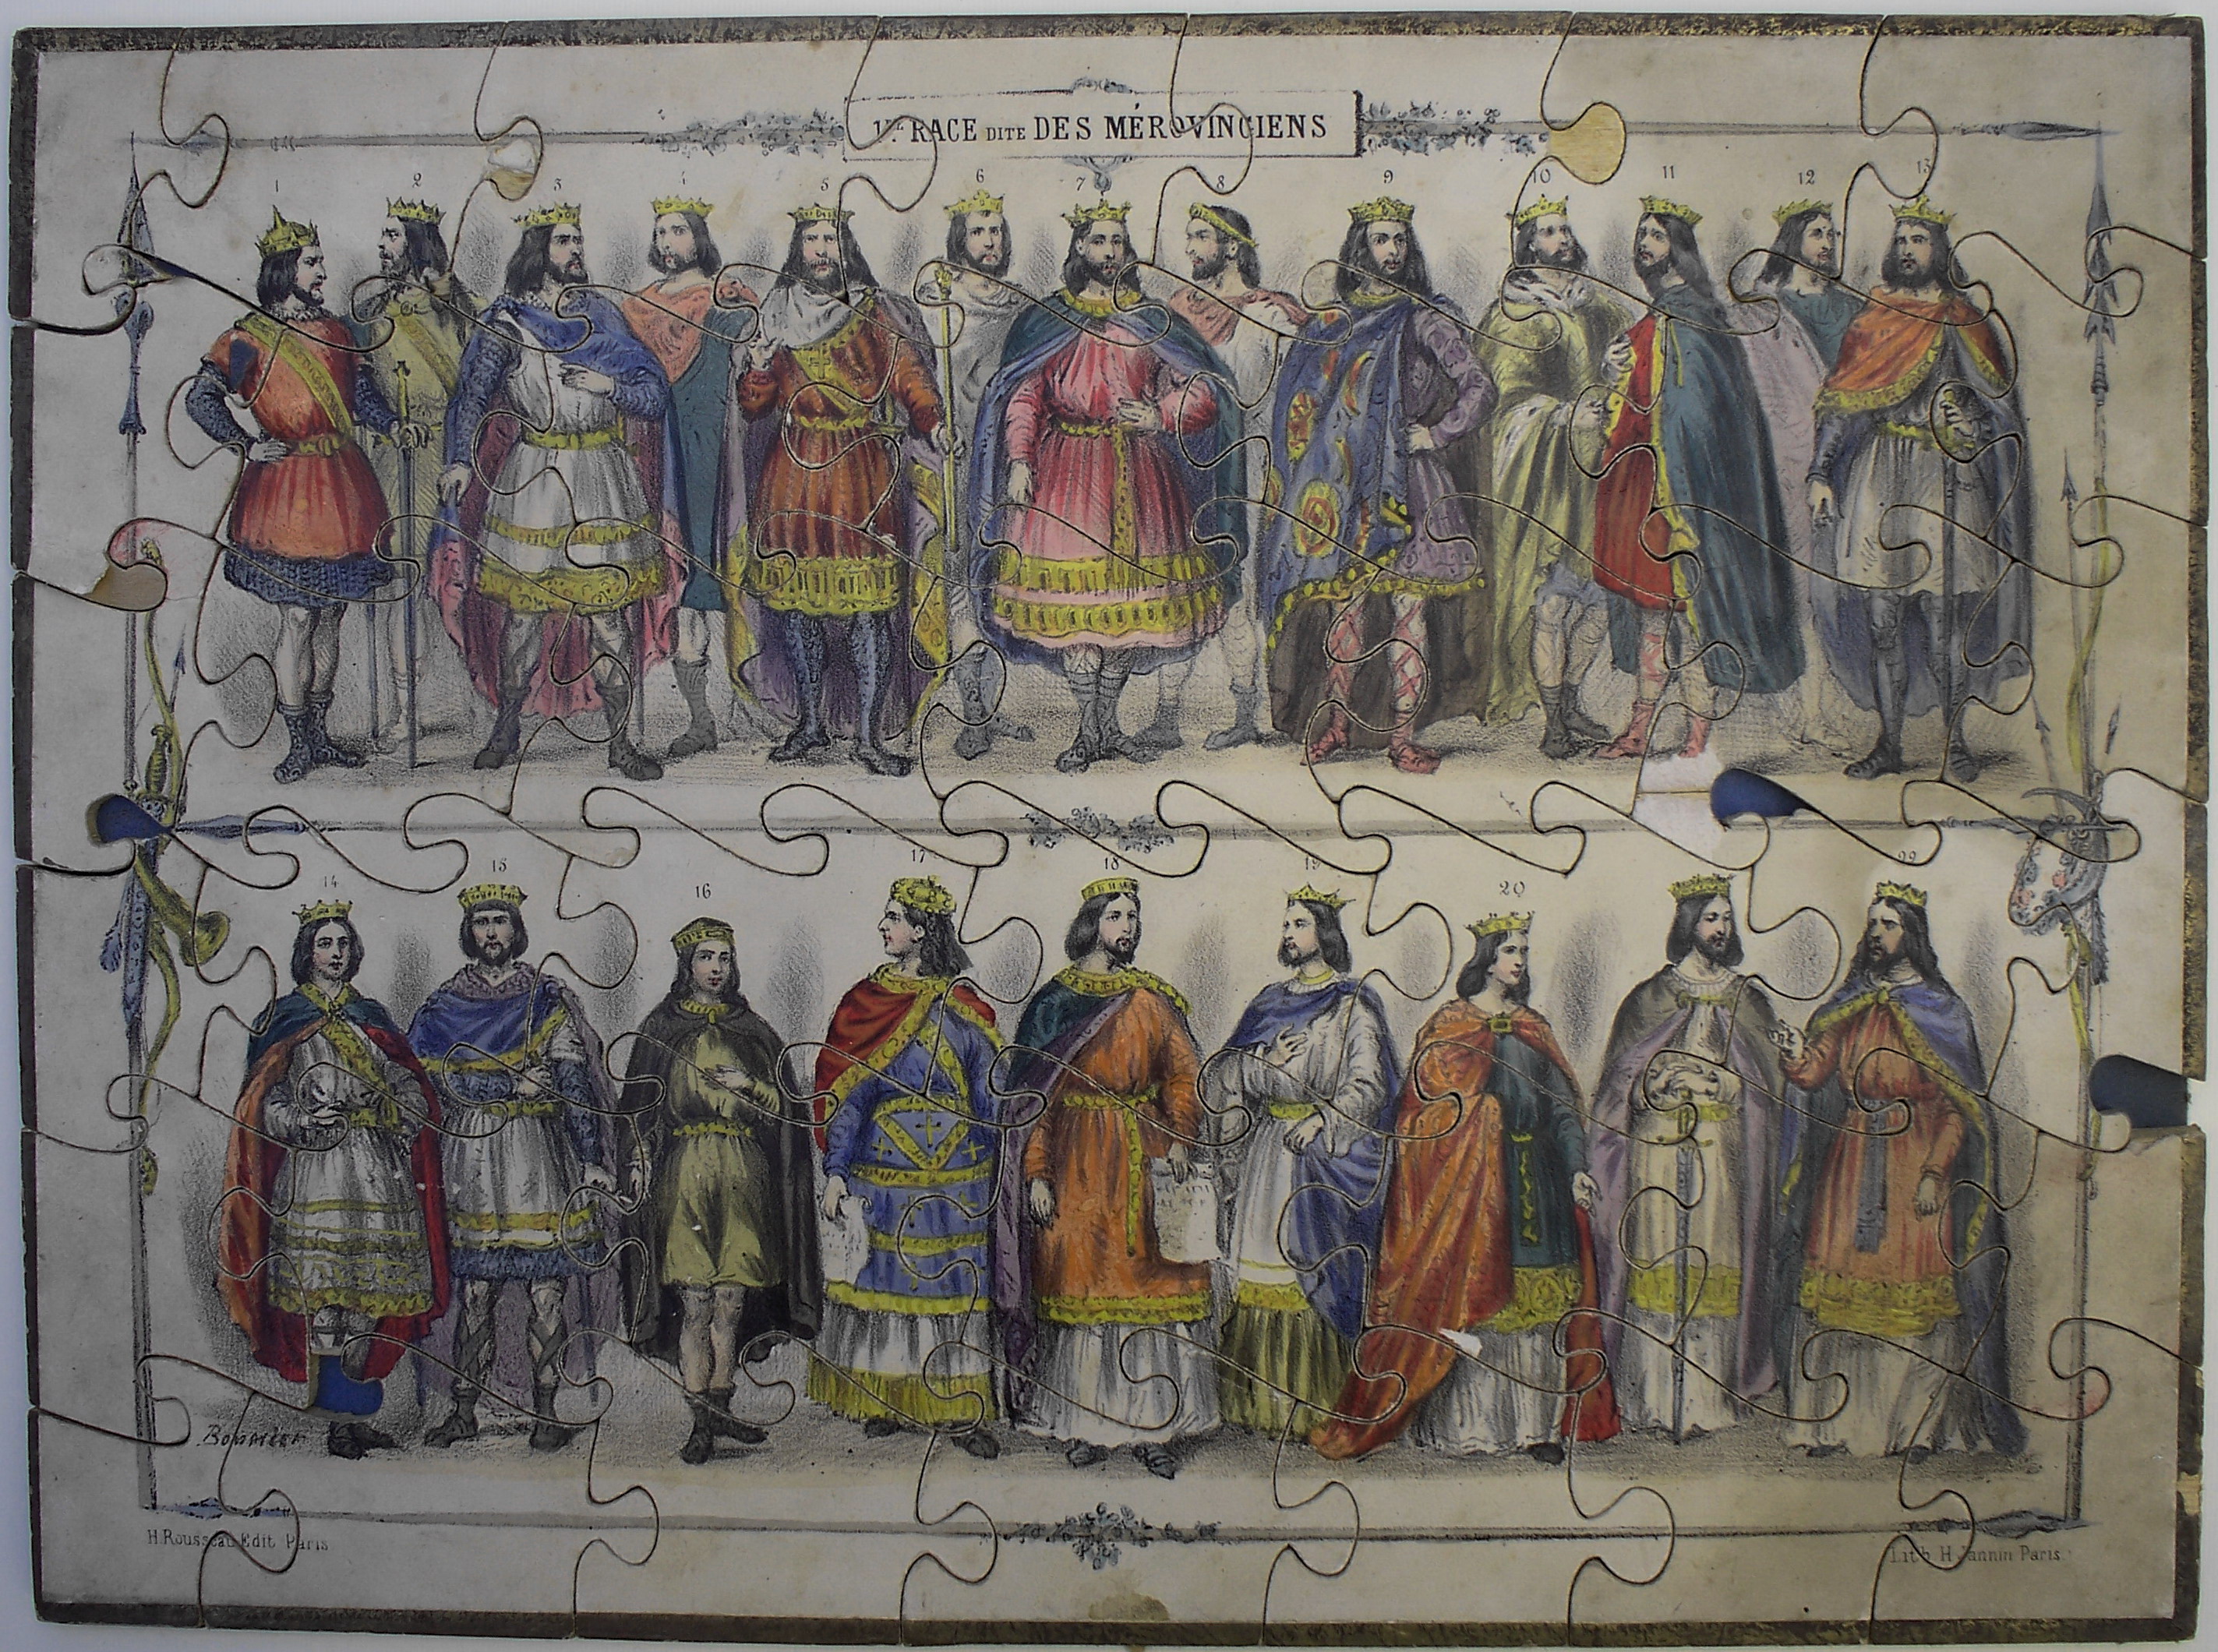 1re RACE DITE DES MÉROVINGIENS
1 2 3 4 5 6 7 8 9 10 11 12 13
14 15 16 17 18 19 20 22
H. Rousseau Edit. Paris
Lith. H. Jannin Paris.